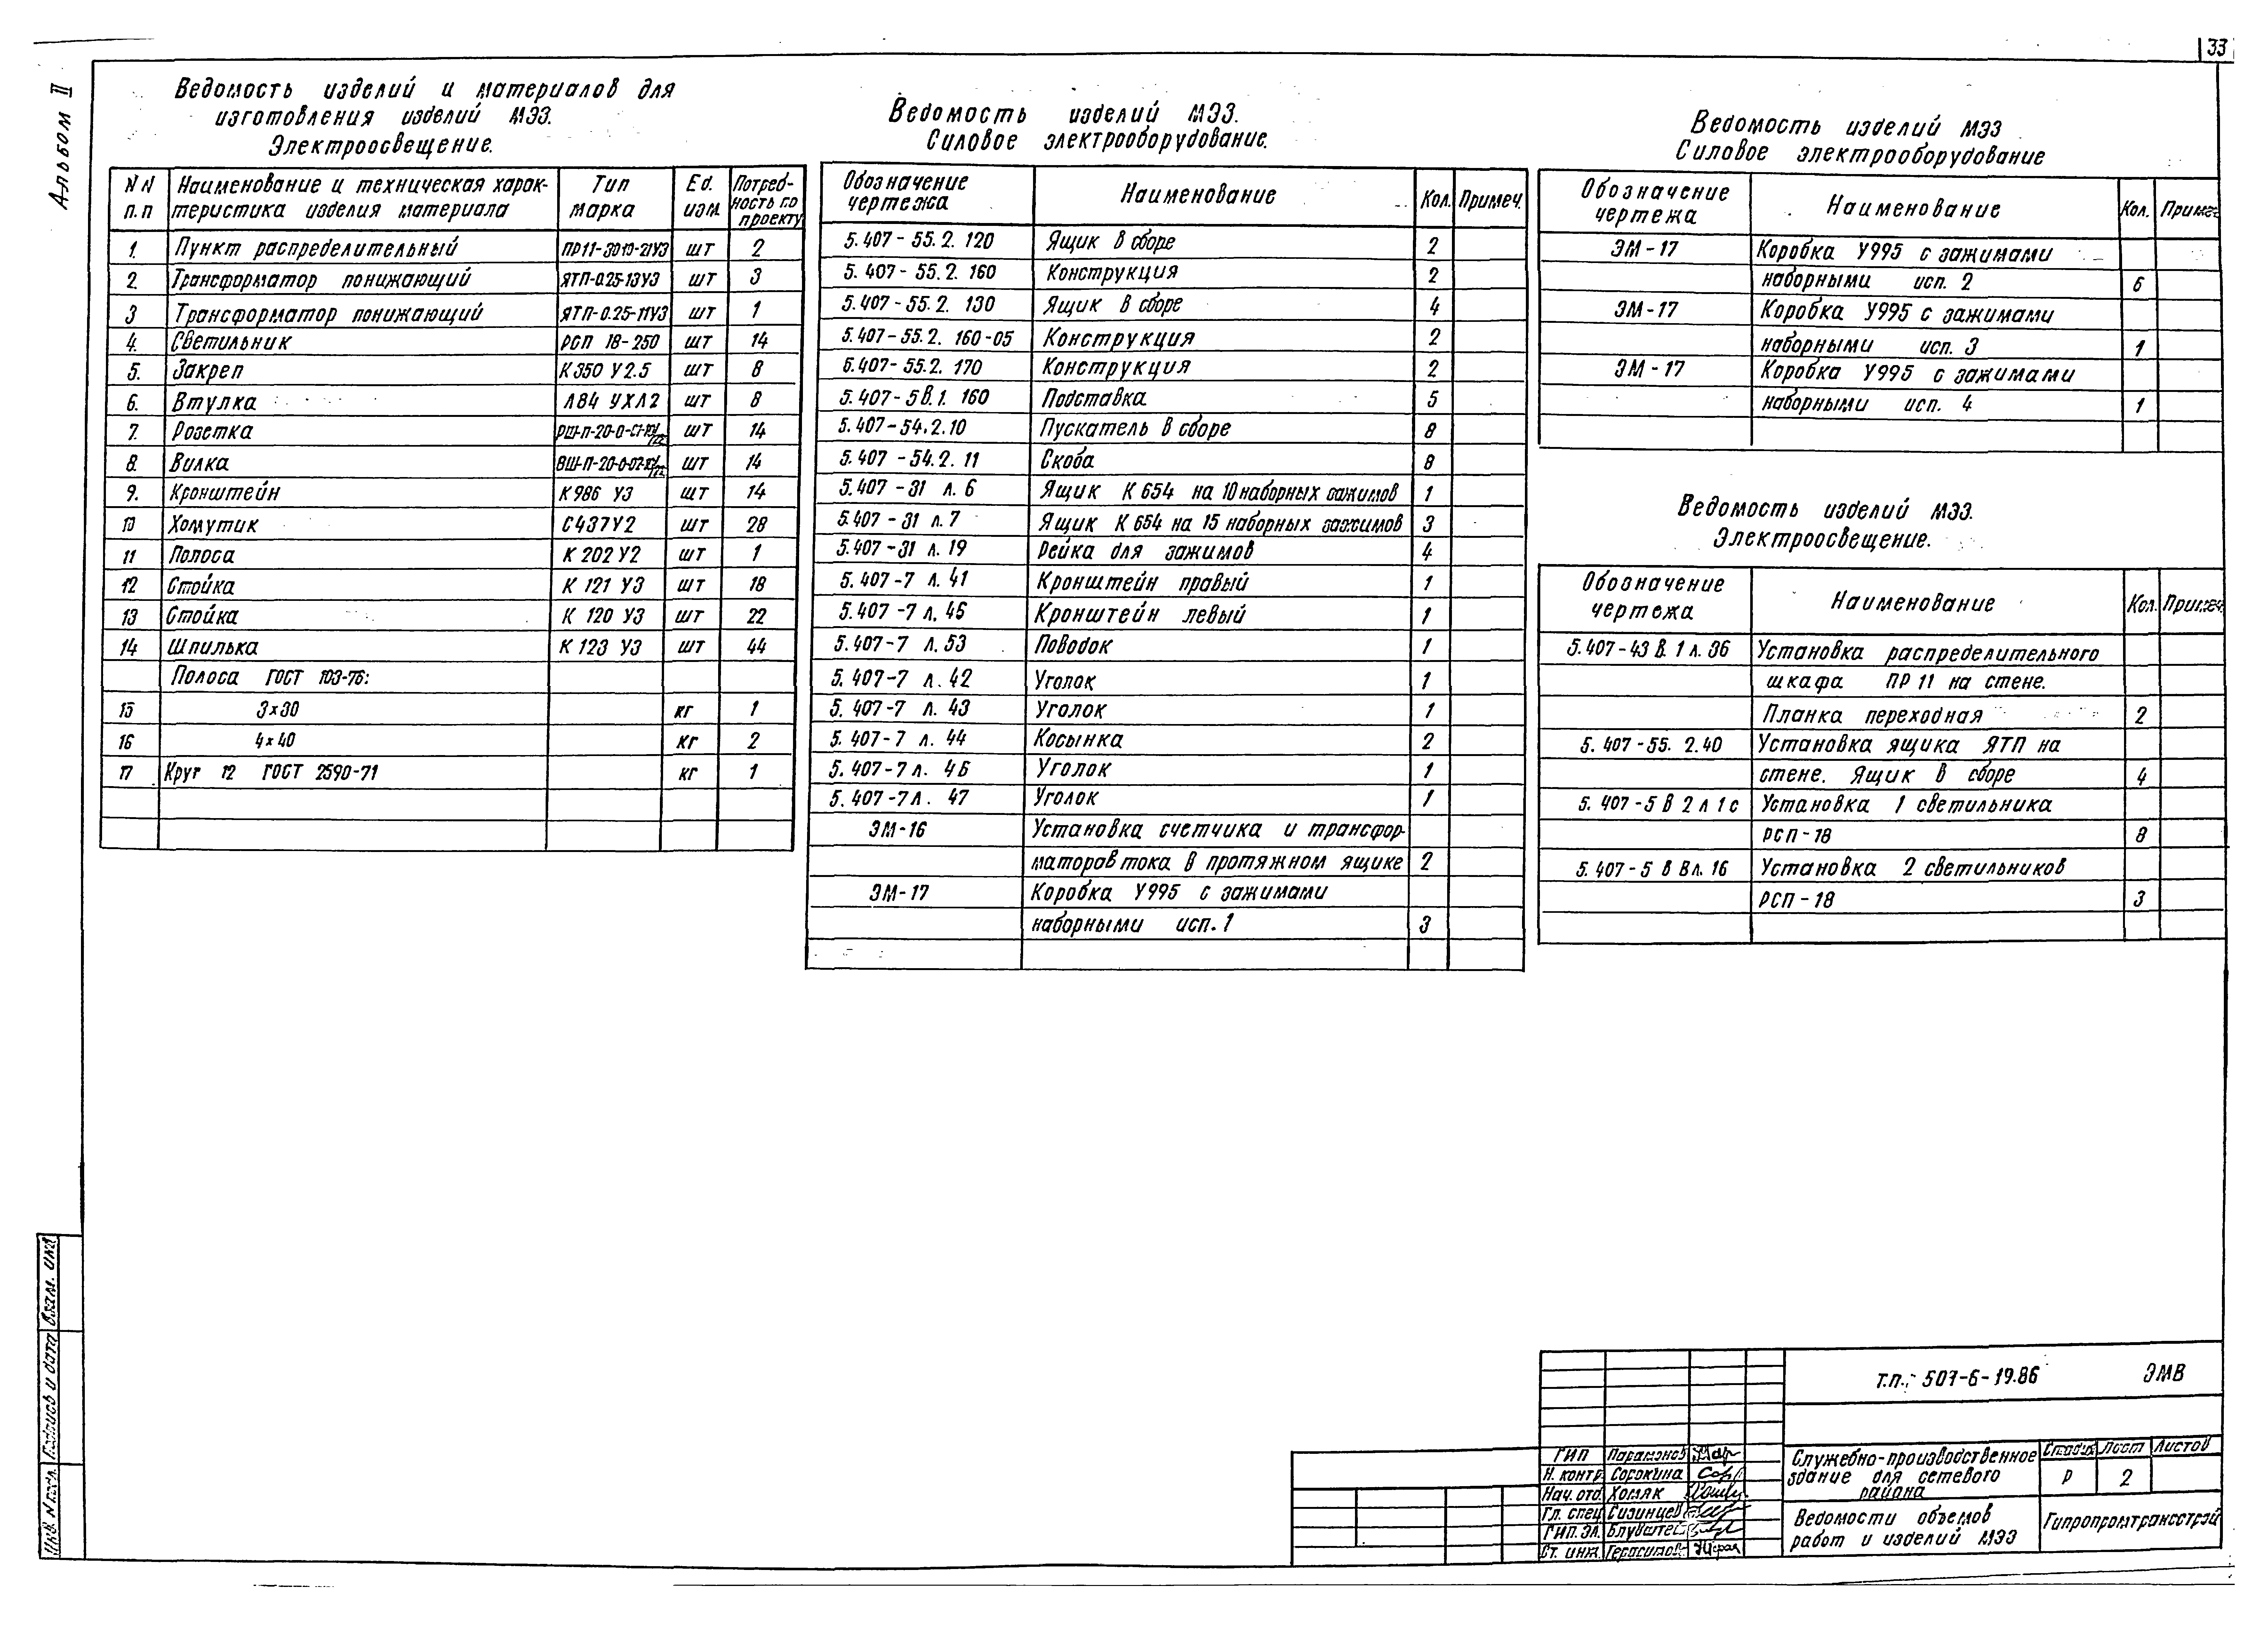 33
Альбом II
Ведомость изделий и материалов для
изготовления изделий МЭЗ.
Электроосвещение.
NN п.п Наименование и техническая характеристика изделия материала Тип марка Ед. изм. Потребность по проекту
1. Пункт распределительный ПР11-3010-21У3 шт 2
2. Трансформатор понижающий ЯТП-0.25-13У3 шт 3
3 Трансформатор понижающий ЯТП-0.25-11У3 шт 1
4. Светильник РСП 18-250 шт 14
5. Закреп К350 У2.5 шт 8
6. Втулка Л84 УХЛ2 шт 8
7. Розетка шт 14
8. Вилка шт 14
9. Кронштейн К986 У3 шт 14
10 Хомутик С437У2 шт 28
11 Полоса К 202 У2 шт 1
12 Стойка К 121 У3 шт 18
13 Стойка К 120 У3 шт 22
14 Шпилька К 123 У3 шт 44
Полоса ГОСТ 103-76:
15 3х30 кг 1
16 4х40 кг 2
17 Круг 12 ГОСТ 2590-71 кг 1
Ведомость изделий МЭЗ.
Силовое электрооборудование.
Обозначение чертежа Наименование Кол. Примеч.
5.407-55.2.120 Ящик в сборе 2
5.407-55.2.160 Конструкция 2
5.407-55.2.130 Ящик в сборе 4
5.407-55.2.160-05 Конструкция 2
5.407-55.2.170 Конструкция 2
5.407-5В.1.160 Подставка 5
5.407-54.2.10 Пускатель в сборе 8
5.407-54.2.11 Скоба 8
5.407-31 л.6 Ящик К 654 на 10 наборных зажимов 1
5.407-31 л.7 Ящик К 654 на 15 наборных зажимов 3
5.407-31 л.19 Рейка для зажимов 4
5.407-7 л.41 Кронштейн правый 1
5.407-7 л.45 Кронштейн левый 1
5.407-7 л.53 Поводок 1
5.407-7 л.42 Уголок 1
5.407-7 л.43 Уголок 1
5.407-7 л.44 Косынка 2
5.407-7 л.46 Уголок 1
5.407-7л.47 Уголок 1
ЭМ-16 Установка счетчика и трансфор-
маторов тока в протяжном ящике 2
ЭМ-17 Коробка У995 с зажимами
наборными исп.1 3
Ведомость изделий МЭЗ
Силовое электрооборудование
Обозначение чертежа Наименование Кол. Примеч
ЭМ-17 Коробка У995 с зажимами
наборными исп. 2 6
ЭМ-17 Коробка У995 с зажимами
наборными исп. 3 1
ЭМ-17 Коробка У995 с зажимами
наборными исп. 4 1
Ведомость изделий МЭЗ.
Электроосвещение.
Обозначение чертежа Наименование Кол. Примеч
5.407-43 В.1 л.36 Установка распределительного
шкафа ПР 11 на стене.
Планка переходная 2
5.407-55.2.40 Установка ящика ЯТП на
стене. Ящик в сборе 4
5.407-5 В 2 л 1 с Установка 1 светильника
РСП-18 8
5.407-5 В Вл.16 Установка 2 светильников
РСП-18 3
Взам. инв
Подпись и дата
Инв. N подл.
т.п.: 507-6-19.86 ЭМВ
ГИП Парамонов
Н. контр. Сорокина
Нач. отд. Хомяк
Гл. спец Сизинцев
ГИП. Эл.
Ст. инж. Герасимов
Служебно-производственное
здание для сетевого
района
Стадия Лист Листов
Р 2
Ведомости объемов
работ и изделий МЭЗ
Гипропромтрансстрой